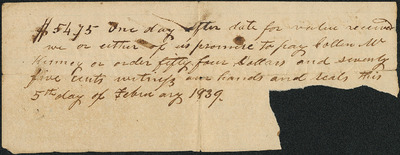 $5475 One day after date for value received
we or either of us promise to pay Collen Mc
Kinney or order fifty four dollars and seventy
five cents witness our hands and seals this
5th day of February 1839.